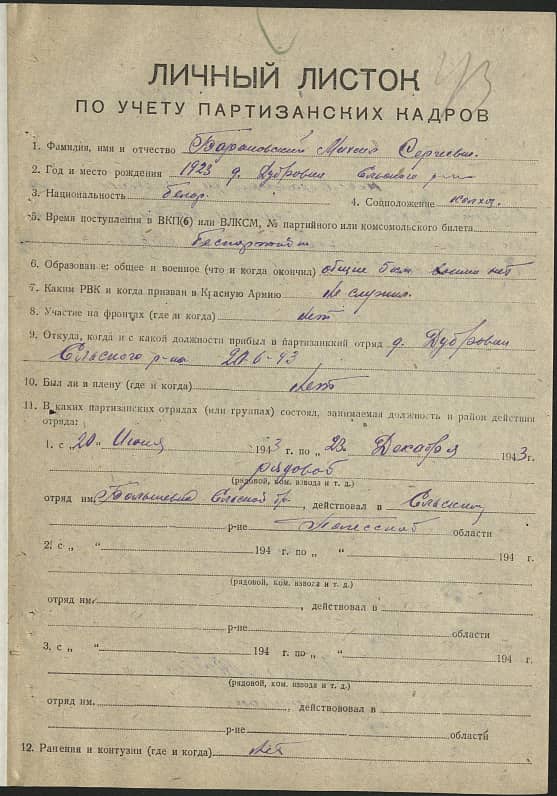 43
ЛИЧНЫЙ ЛИСТОК
ПО УЧЕТУ ПАРТИЗАНСКИХ КАДРОВ
1. Фамилия, имя и отчество Барановский Михаил Сергеевич.
2. Год и место рождения 1923 д. Дубровки Ельского р-на
3. Национальность белор. 4. Соцположение колхоз.
5. Время поступления в ВКП(б) или ВЛКСМ, № партийного или комсомольского билета
Беспартийн
6. Образование: общее и военное (что и когда окончил) общее 6 кл. военн нет
7. Каким РВК и когда призван в Красную Армию Не служил.
8. Участие на фронтах (где и когда) Нет
9. Откуда, когда и с какой должности прибыл в партизанский отряд д. Дубровки
Ельского р-на 20.6-43
10. Был ли в плену (где и когда) Нет
11. В каких партизанских отрядах (или группах) состоял, занимаемая должность и район действия
отряда:
1. с „20 Июня 1943 г. по „23. Декабря 1943 г.
рядовой
(рядовой, ком. взвода и т. д.)
отряд им. Большевик Ельской бр, действовал в Ельском
р-не Полесской области
2. с „ “ 194 г. по „ “ 194 г.
(рядовой, ком. взвода и т. д.)
отряд им. , действовал в
р-не области
3. с „ “ 194 г. по „ “ 194 г.
(рядовой, ком. взвода и т. д.)
отряд им. , действововал в
р-не области
12. Ранения и контузии (где и когда) Нет